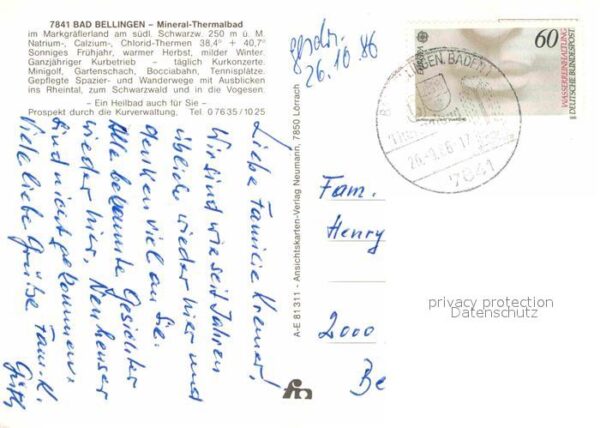 7841 BAD BELLINGEN – Mineral-Thermalbad
im Markgräflerland am südl. Schwarzw. 250 m ü. M.
Natrium-, Calzium-, Chlorid-Thermen 38,4° + 40,7°
Sonniges Frühjahr, warmer Herbst, milder Winter.
Ganzjähriger Kurbetrieb – täglich Kurkonzerte.
Minigolf, Gartenschach, Bocciabahn, Tennisplätze.
Gepflegte Spazier- und Wanderwege mit Ausblicken
ins Rheintal, zum Schwarzwald und in die Vogesen.
– Ein Heilbad auch für Sie –
Prospekt durch die Kurverwaltung, Tel. 0 76 35 / 10 25
26.10.86
Liebe Familie Kremer!
Wir sind wie seit Jahren
üblich wieder hier und
denken viel an Sie.
Alle bekannte Gesichter
wieder hier, Neuheuser
sind nicht gekommen.
Viele liebe Grüße Fam. K.
A-E 81 311 - Ansichtskarten-Verlag Neumann, 7850 Lörrach
EUROPA
CEPT
60
WASSERREINHALTUNG
DEUTSCHE BUNDESPOST
7841
Fam.
Henry
2000
Be
privacy protection
Datenschutz